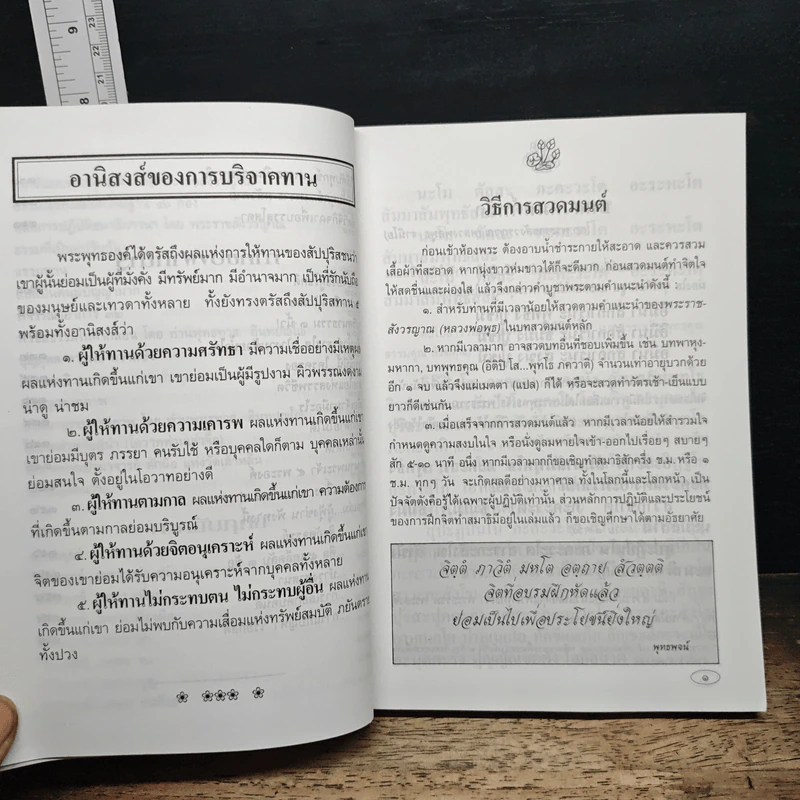 อานิสงส์ของการบริจาคทาน
พระพุทธองค์ได้ตรัสถึงผลแห่งการให้ทานของสัปปุริสชนว่า
เขาผู้นั้นย่อมเป็นผู้ที่มั่งคั่ง มีทรัพย์มาก มีอำนาจมาก เป็นที่รักนับถือ
ของมนุษย์และเทวดาทั้งหลาย ทั้งยังทรงตรัสถึงสัปปุริสทาน ๕
พร้อมทั้งอานิสงส์ว่า
๑. ผู้ให้ทานด้วยความศรัทธา มีความเชื่ออย่างมีเหตุผล
ผลแห่งทานเกิดขึ้นแก่เขา เขาย่อมเป็นผู้มีรูปงาม ผิวพรรณงดงาม
น่าดู น่าชม
๒. ผู้ให้ทานด้วยความเคารพ ผลแห่งทานเกิดขึ้นแก่
เขาย่อมมีบุตร ภรรยา คนรับใช้ หรือบุคคลใดก็ตาม บุคคลเหล่านั้น
ย่อมสนใจ ตั้งอยู่ในโอวาทอย่างดี
๓. ผู้ให้ทานตามกาล ผลแห่งทานเกิดขึ้นแก่เขา ความต้องการ
ที่เกิดขึ้นตามกาลย่อมบริบูรณ์
๔. ผู้ให้ทานด้วยจิตอนุเคราะห์ ผลแห่งทานเกิดขึ้นแก่เขา
จิตของเขาย่อมได้รับความอนุเคราะห์จากบุคคลทั้งหลาย
๕. ผู้ให้ทานไม่กระทบตน ไม่กระทบผู้อื่น ผลแห่งทาน
เกิดขึ้นแก่เขา ย่อมไม่พบกับความเสื่อมแห่งทรัพย์สมบัติ ภยันตราย
ทั้งปวง
วิธีการสวดมนต์
ก่อนเข้าห้องพระ ต้องอาบน้ำชำระกายให้สะอาด และควรสวม
เสื้อผ้าที่สะอาด หากนุ่งขาวห่มขาวได้ก็จะดีมาก ก่อนสวดมนต์ทำจิตใจ
ให้สดชื่นและผ่องใส แล้วจึงกล่าวคำบูชาพระตามคำแนะนำดังนี้ :
๑. สำหรับท่านที่มีเวลาน้อยให้สวดตามคำแนะนำของพระราช-
สังวรญาณ (หลวงพ่อพุธ) ในบทสวดมนต์หลัก
๒. หากมีเวลามาก อาจสวดบทอื่นที่ชอบเพิ่มขึ้น เช่น บทพาหุง-
มหากา, บทพุทธคุณ (อิติปิ โส...พุทโธ ภควาติ) จำนวนเท่าอายุบวกด้วย
อีก ๑ จบ แล้วจึงแผ่เมตตา (แปล) ก็ได้ หรือจะสวดทำวัตรเช้า-เย็นแบบ
ยาวก็ดีเช่นกัน
๓. เมื่อเสร็จจากการสวดมนต์แล้ว หากมีเวลาน้อยให้สำรวมใจ
กำหนดดูความสงบในใจ หรือนั่งดูลมหายใจเข้า-ออกไปเรื่อยๆ สบายๆ
สัก ๕-๑๐ นาที อนึ่ง หากมีเวลามากก็ขอเชิญทำสมาธิสักครึ่ง ช.ม. หรือ ๑
ช.ม. ทุกๆ วัน จะเกิดผลดีอย่างมหาศาล ทั้งในโลกนี้และโลกหน้า เป็น
ปัจจัตตังคือรู้ได้เฉพาะผู้ปฏิบัติเท่านั้น ส่วนหลักการปฏิบัติและประโยชน์
ของการฝึกจิตทำสมาธิมีอยู่ในเล่มแล้ว ก็ขอเชิญศึกษาได้ตามอัธยาศัย
จิตฺตํ ภาวิตํ มหโต อตฺถาย สํวตฺตติ
จิตที่อบรมฝึกหัดแล้ว
ย่อมเป็นไปเพื่อประโยชน์ยิ่งใหญ่
พุทธพจน์
๑